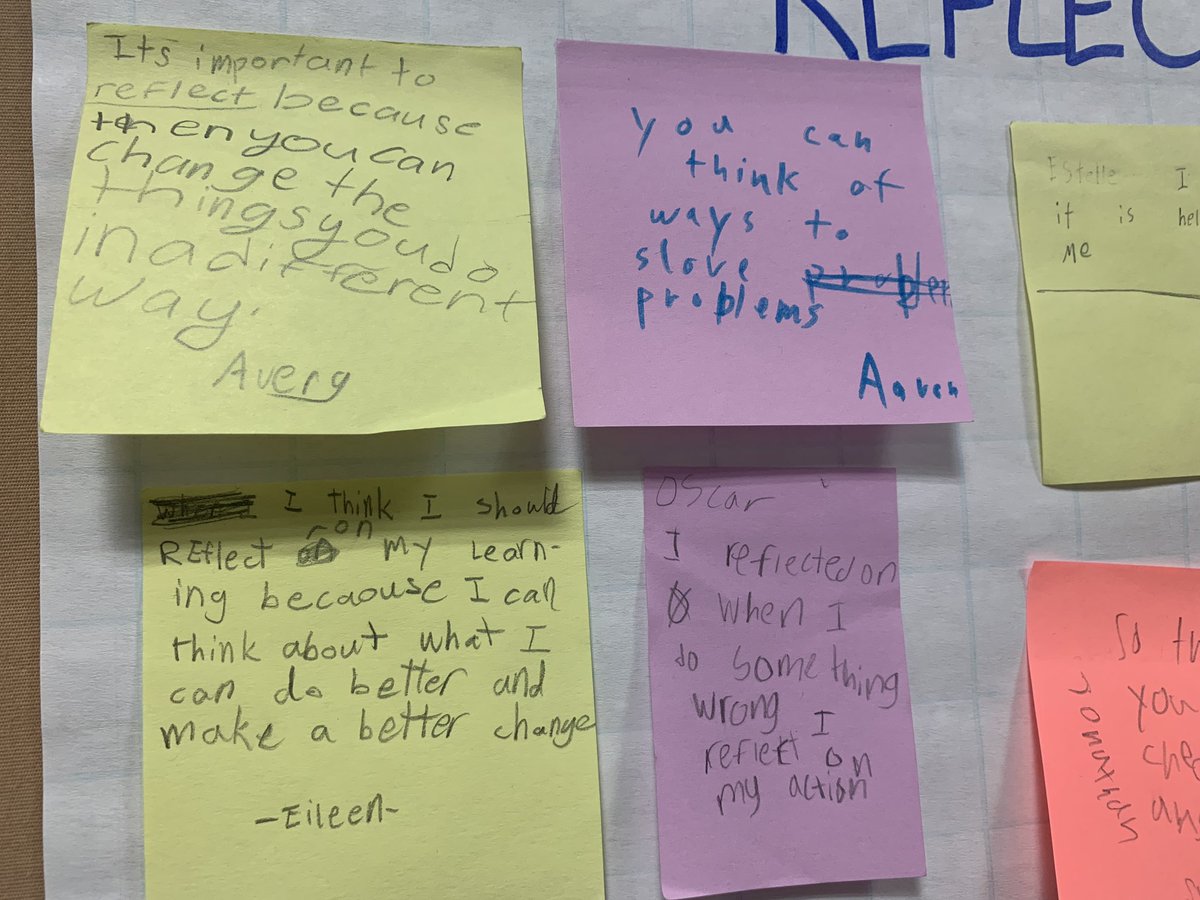 REFLEC
Its important to
reflect because
then you can
change the
things you do
in a different
way.
Avery
you can
think of
ways to
slove problem
problems
Aaron
Estelle I
it is hel
me
I think I should
REflect on my Learn-
ing becaouse I can
think about what I
can do better and
make a better change
-Eileen-
Oscar
I reflected on
when I
do something
wrong I
reflect on
my action
So th
you
che
ans
Jonathan